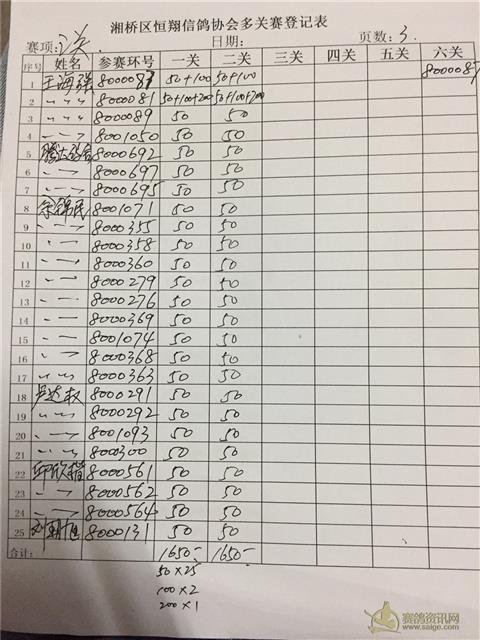 湘桥区恒翔信鸽协会多关赛登记表
赛项: 关 日期: 页数: 3.
序号 姓名 参赛环号 一关 二关 三关 四关 五关 六关
1 王海强 50+100 50+100 8000087
2 〃 〃 〃 8000081 50+100+200 50+100+200
3 〃 〃 〃 8000089 50 50
4 〃 — 〃 8001050 50 50
5 8000692 50 50
6 〃 — 〃 8000697 50 50
7 〃 — 〃 8000695 50 50
8 余锦民 8001071 50 50
9 〃 — 8000355 50 50
10 〃 — 8000358 50 50
11 〃 — 8000360 50 50
12 〃 — 8000279 50 50
13 〃 — 8000276 50 50
14 〃 — 8000369 50 50
15 〃 — 8001074 50 50
16 〃 — 8000368 50 50
17 〃 〃 8000363 50 50
18 8000291 50 50
19 〃 〃 8000292 50 50
20 〃 — 〃 8001093 50 50
21 〃 〃 8000300 50 50
22 8000561 50 50
23 〃 〃 8000562 50 50
24 〃 — 〃 8000564 50 50
25 8000131 50 50
合计: 1650- 1650-
50×25
100×2
200×1
赛鸽资讯网
www.saige.com